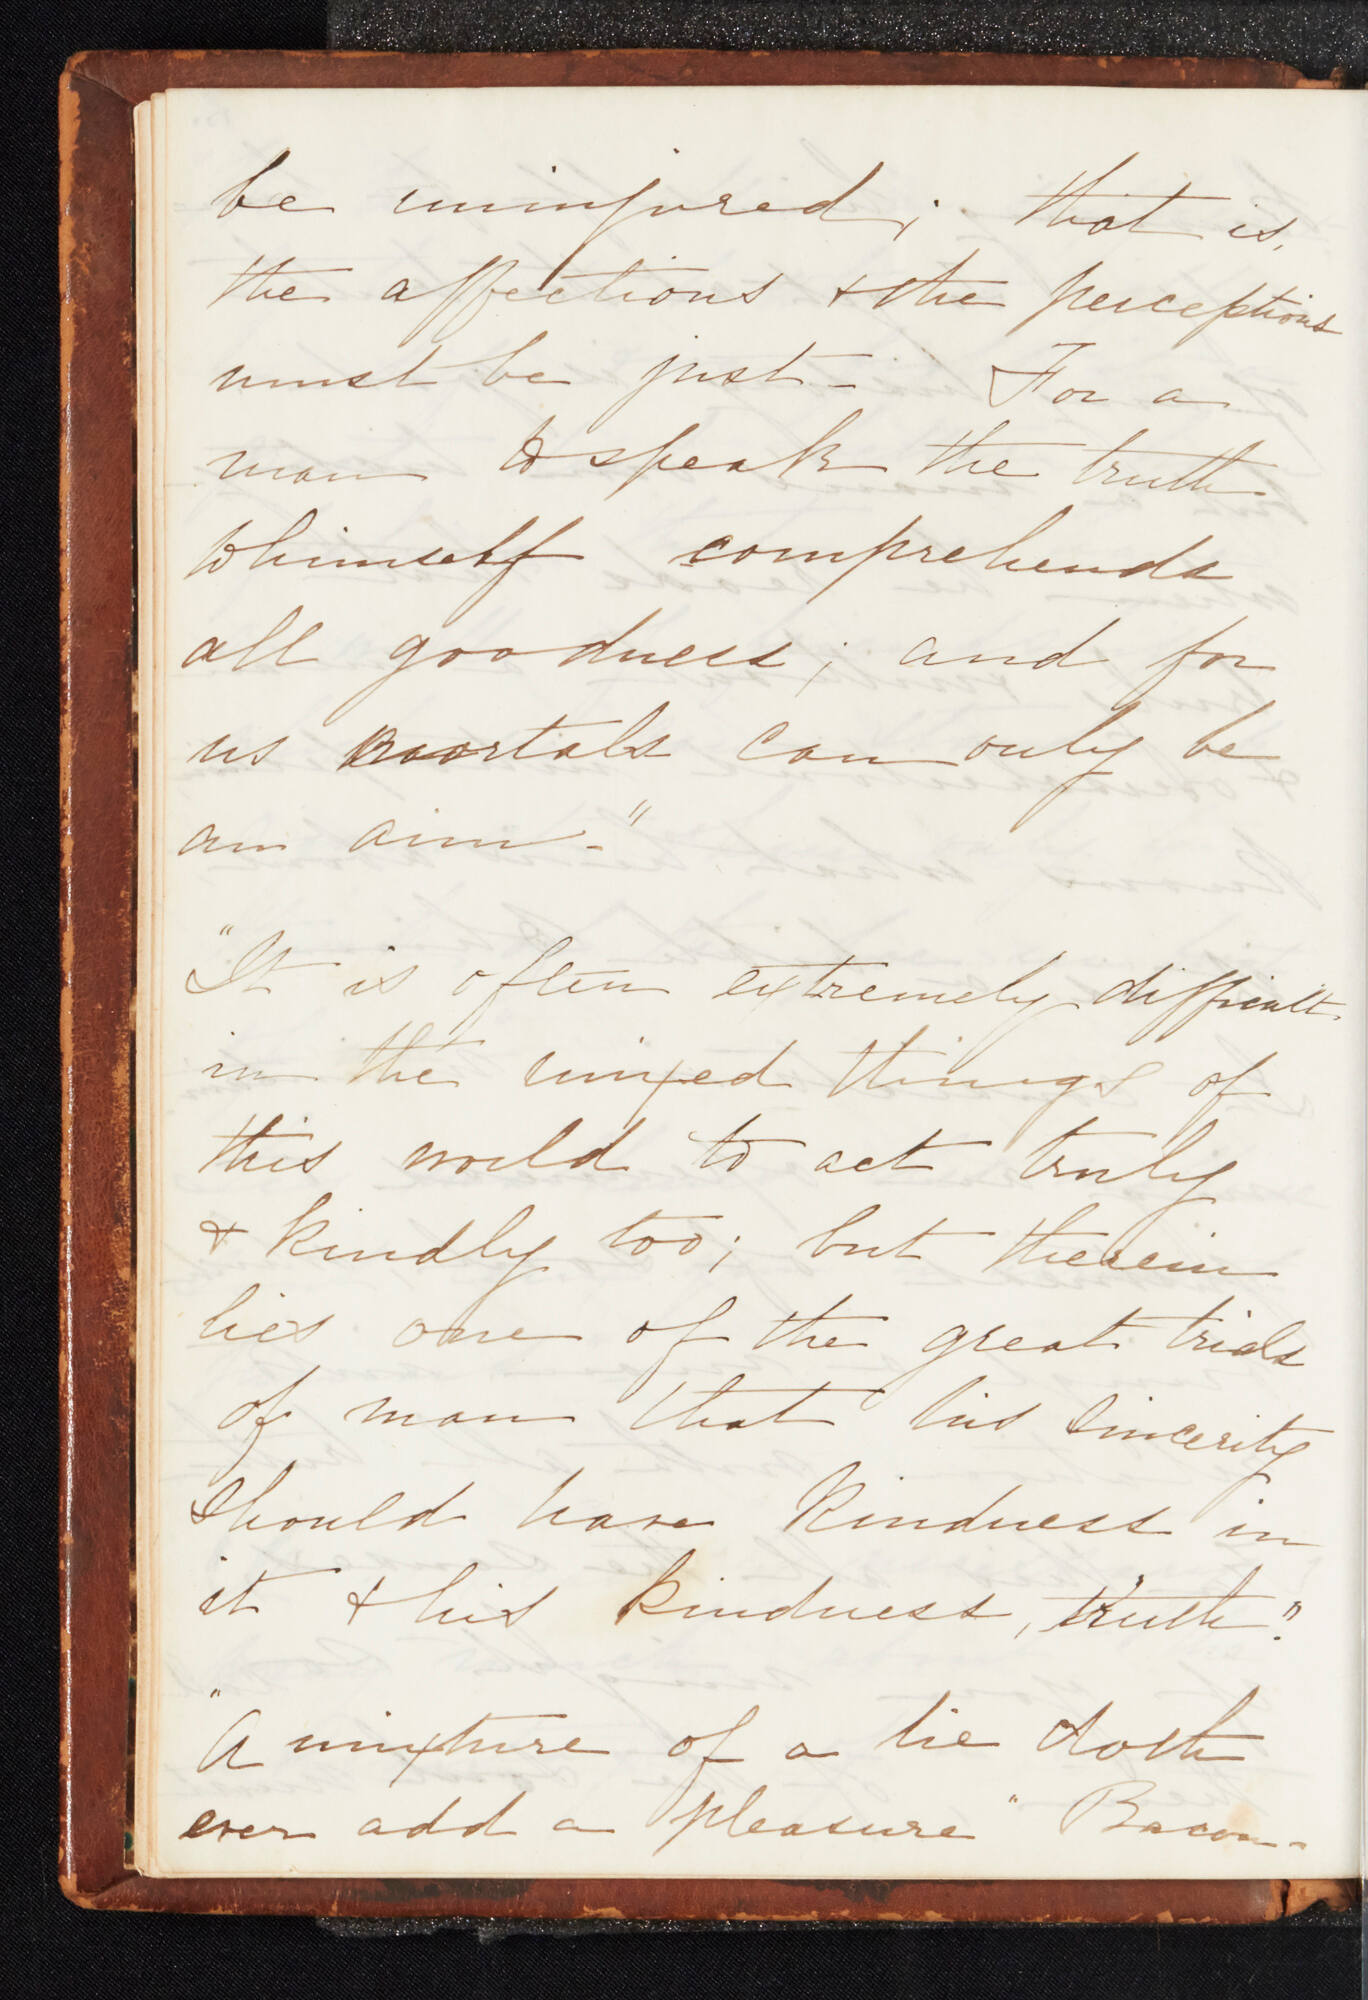 be uninjured; that is,
the affections & the perceptions
must be just - For a
man to speak the truth
to himself comprehends
all goodness; and for
us mortals can only be
an aim -"
"It is often extremely difficult
in the mixed things of
this world to act truly
& kindly too; but therein
lies one of the great trials
of man that his sincerity
should have kindness in
it & his kindness, truth."
"A mixture of a lie doth
ever add a pleasure" Bacon -